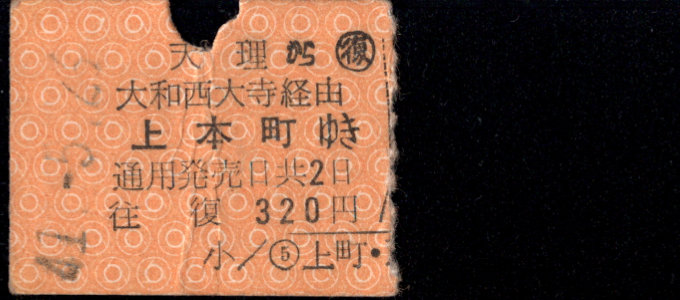 天理から ㊝
大和西大寺経由
上本町ゆき
通用発売日共2日
往復 320円
小/⑤上町•